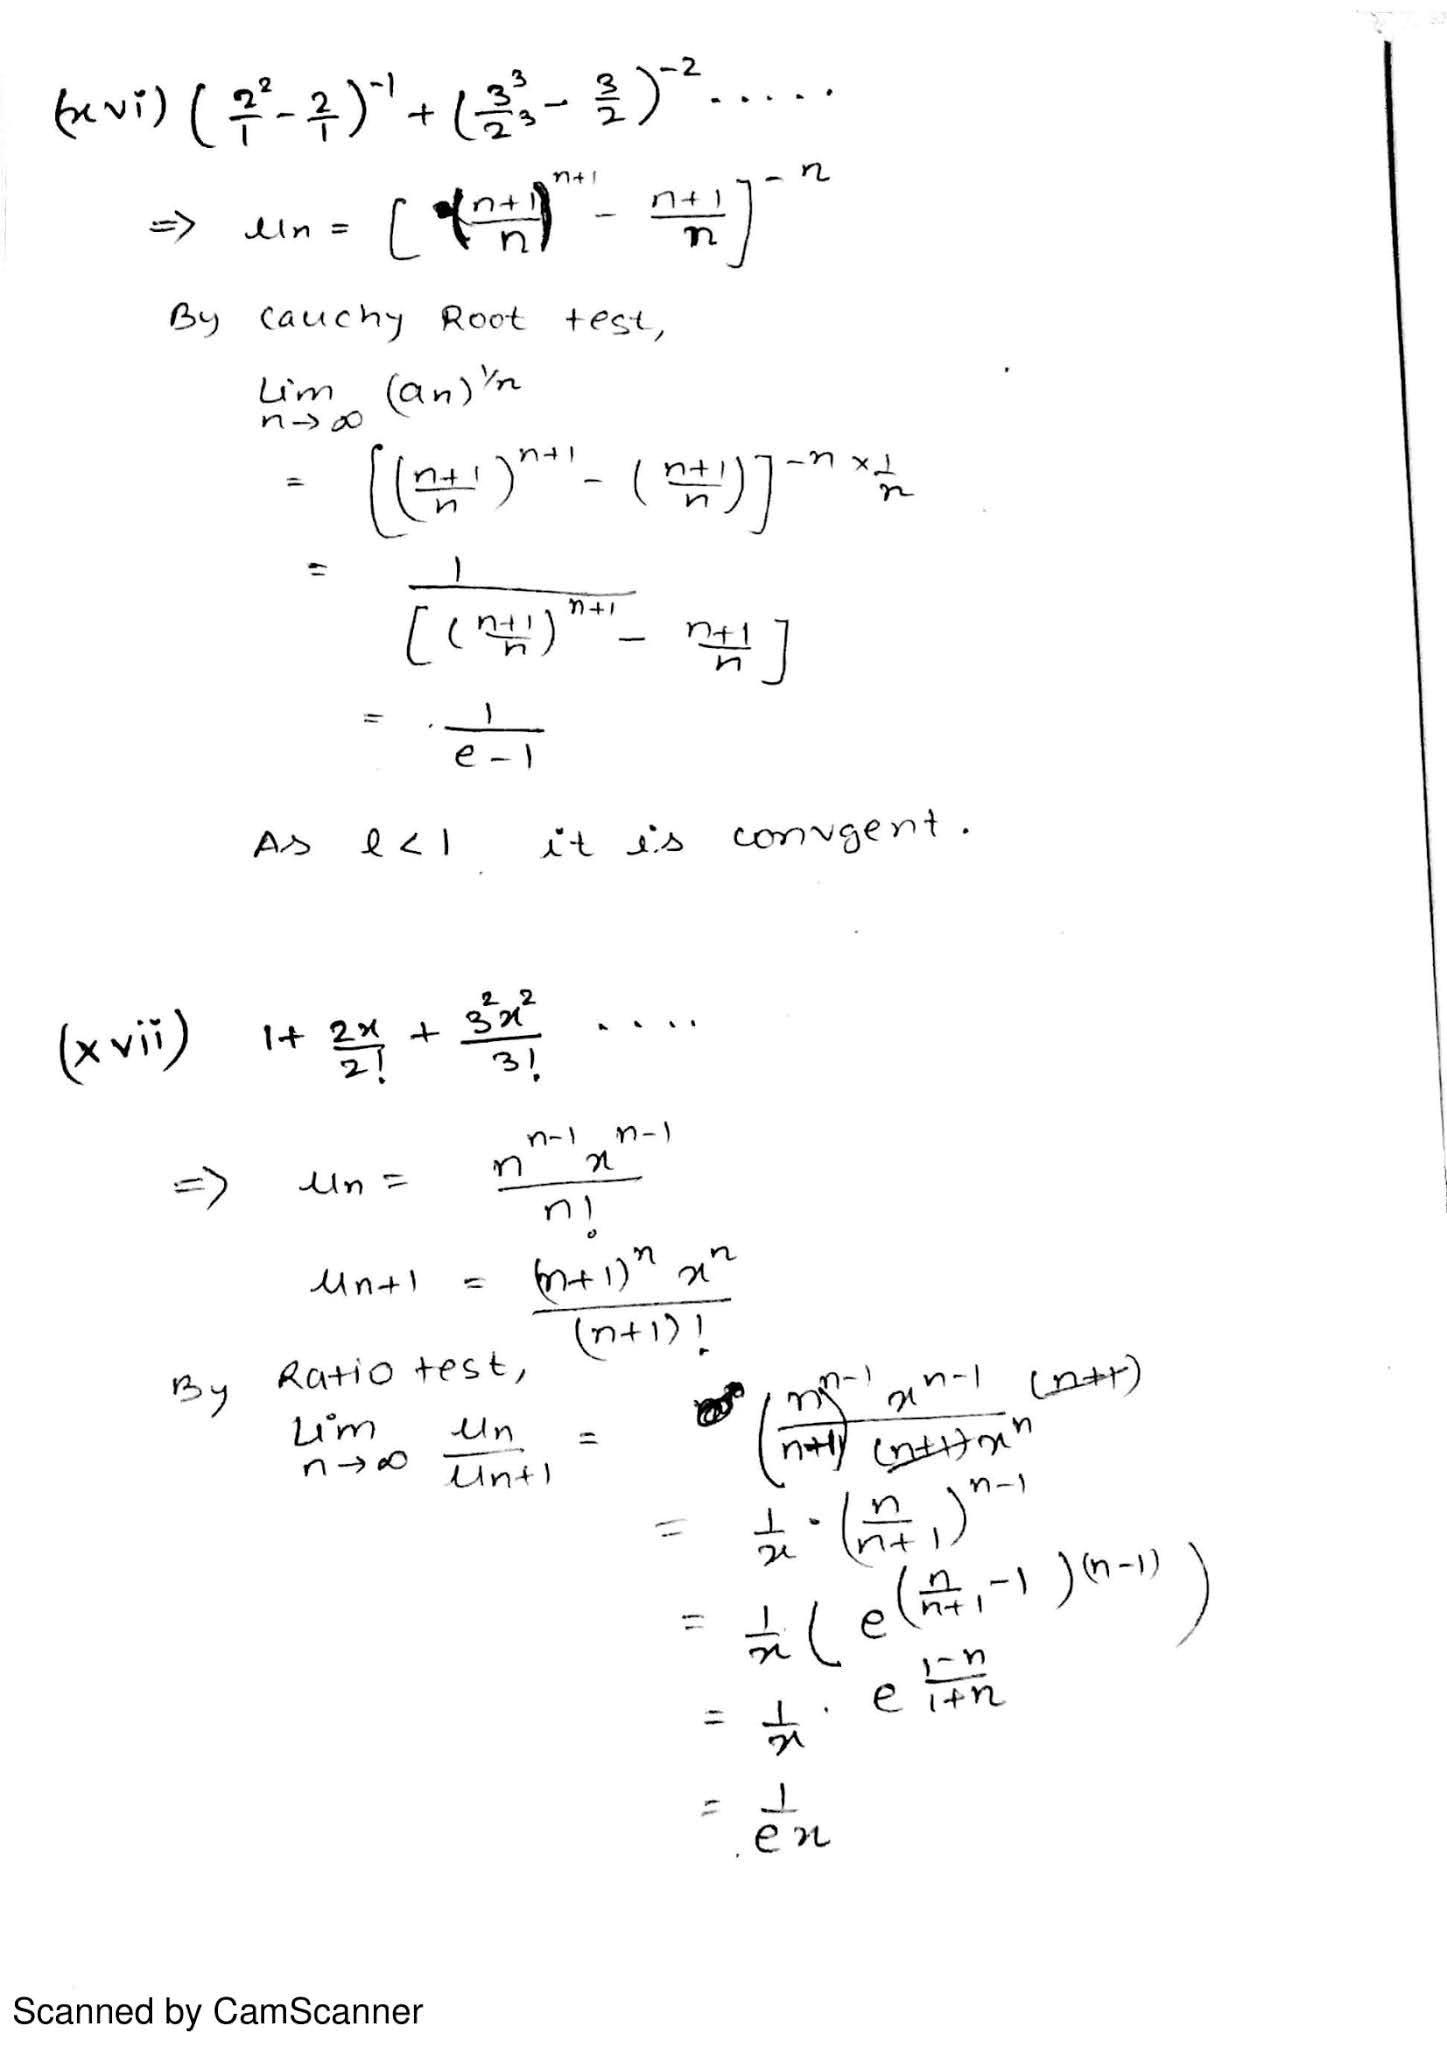 (xvi) (2²/1 - 2/1)⁻¹ + (3³/2³ - 3/2)⁻² .....
=> un = [((n+1)/n)ⁿ⁺¹ - (n+1)/n]⁻ⁿ
By Cauchy Root test,
Lim n→∞ (an)^(1/n)
= [((n+1)/n)ⁿ⁺¹ - ((n+1)/n)]^(-n × 1/n)
= 1/[((n+1)/n)ⁿ⁺¹ - (n+1)/n]
= 1/(e-1)
As l<1 it is convgent.
(xvii) 1+ 2x/2! + 3²x²/3! ....
=> un = nⁿ⁻¹ xⁿ⁻¹/n!
un+1 = (n+1)ⁿ xⁿ/(n+1)!
By Ratio test,
Lim n→∞ un/un+1 = (n/(n+1))ⁿ⁻¹ xⁿ⁻¹ (n+1)/((n+1)xⁿ)
= 1/x · (n/(n+1))ⁿ⁻¹
= 1/x (e^((n/(n+1) - 1)(n-1)))
= 1/x · e^((1-n)/(1+n))
= 1/(ex)
Scanned by CamScanner